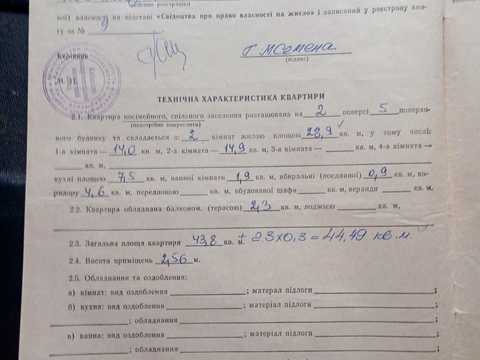 ної) власності на підставі «Свідоцтва про право власності на житло» і записаний у реєстрову кни-
гу за №
Керівник
(підпис)
М. П.
ТЕХНІЧНА ХАРАКТЕРИСТИКА КВАРТИРИ
2.1. Квартира косімейного, спільного заселення розташована на 2 поверсі 5 поверхо-
(непотрібне викреслити)
вого будинку та складається з 2 кімнат жилою площею 28,9 кв. м, у тому числі:
1-а кімната — 14,0 кв. м, 2-а кімната — 14,9 кв. м, 3-я кімната — кв. м, 4-а кімната —
кв. м,
кухні площею 7,5 кв. м, ванної кімнати 1,9 кв. м, вбиральні (поєднаної) 0,9 кв. м, ко-
ридору 4,6 кв. м, передпокою кв. м, вбудованої шафи кв. м, веранди кв. м,
2.2. Квартира обладнана балконом, (терасою) 2,3 кв. м, лоджією кв. м,
2.3. Загальна площа квартири 43,8 кв. м. + 2.3х0,3 = 44,49 кв. м.
2.4. Висота приміщень 2,56 м.
2.5. Обладнання та оздоблення:
а) кімнат: вид оздоблення ; матеріал підлоги ;
б) кухня: вид оздоблення ; матеріал підлоги
; обладнання ;
в) ванна: вид оздоблення ; матеріал підлоги
; обладнання ;